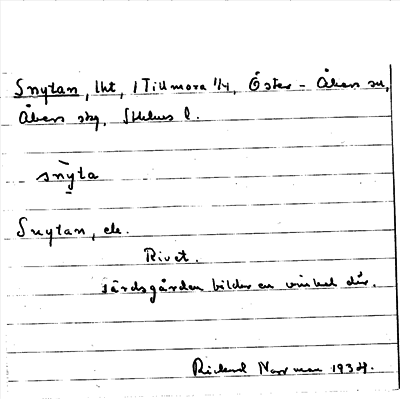 Snytan, lht, / Tillmora 1/4, Öster-Åkers sn,
Åkers skg, Sthlms l.
snỳta
Snytan, ele.
Rivet.
järdsgården bilder en vinkel där.
Rickard Norrman 1934.